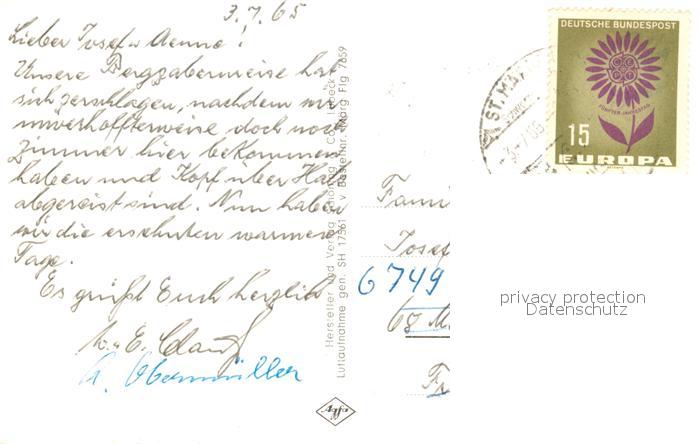 3.7.65
Lieber Josef u Aenne!
Unsere Bergzabernreise hat
sich zerschlagen, nachdem wir
unverhoffterweise doch noch
Zimmer hier bekommen
haben und Kopf über Hals
abgereist sind. Nun haben
wir die ersehnten warmen
Tage.
Es grüßt Euch herzlich
u. E.
A. Obermüller
Hersteller und Verlag Schöning & Co., Lübeck
Luftaufnahme gen. SH 17561 v. Bastelfor. Marg Flg 7659
Agfa
DEUTSCHE BUNDESPOST
FÜNFTER JAHRESTAG
15
EUROPA
ST. MÄ
-3.-7.65
Fami
Josef
6749
68 M
Fr
privacy protection
Datenschutz